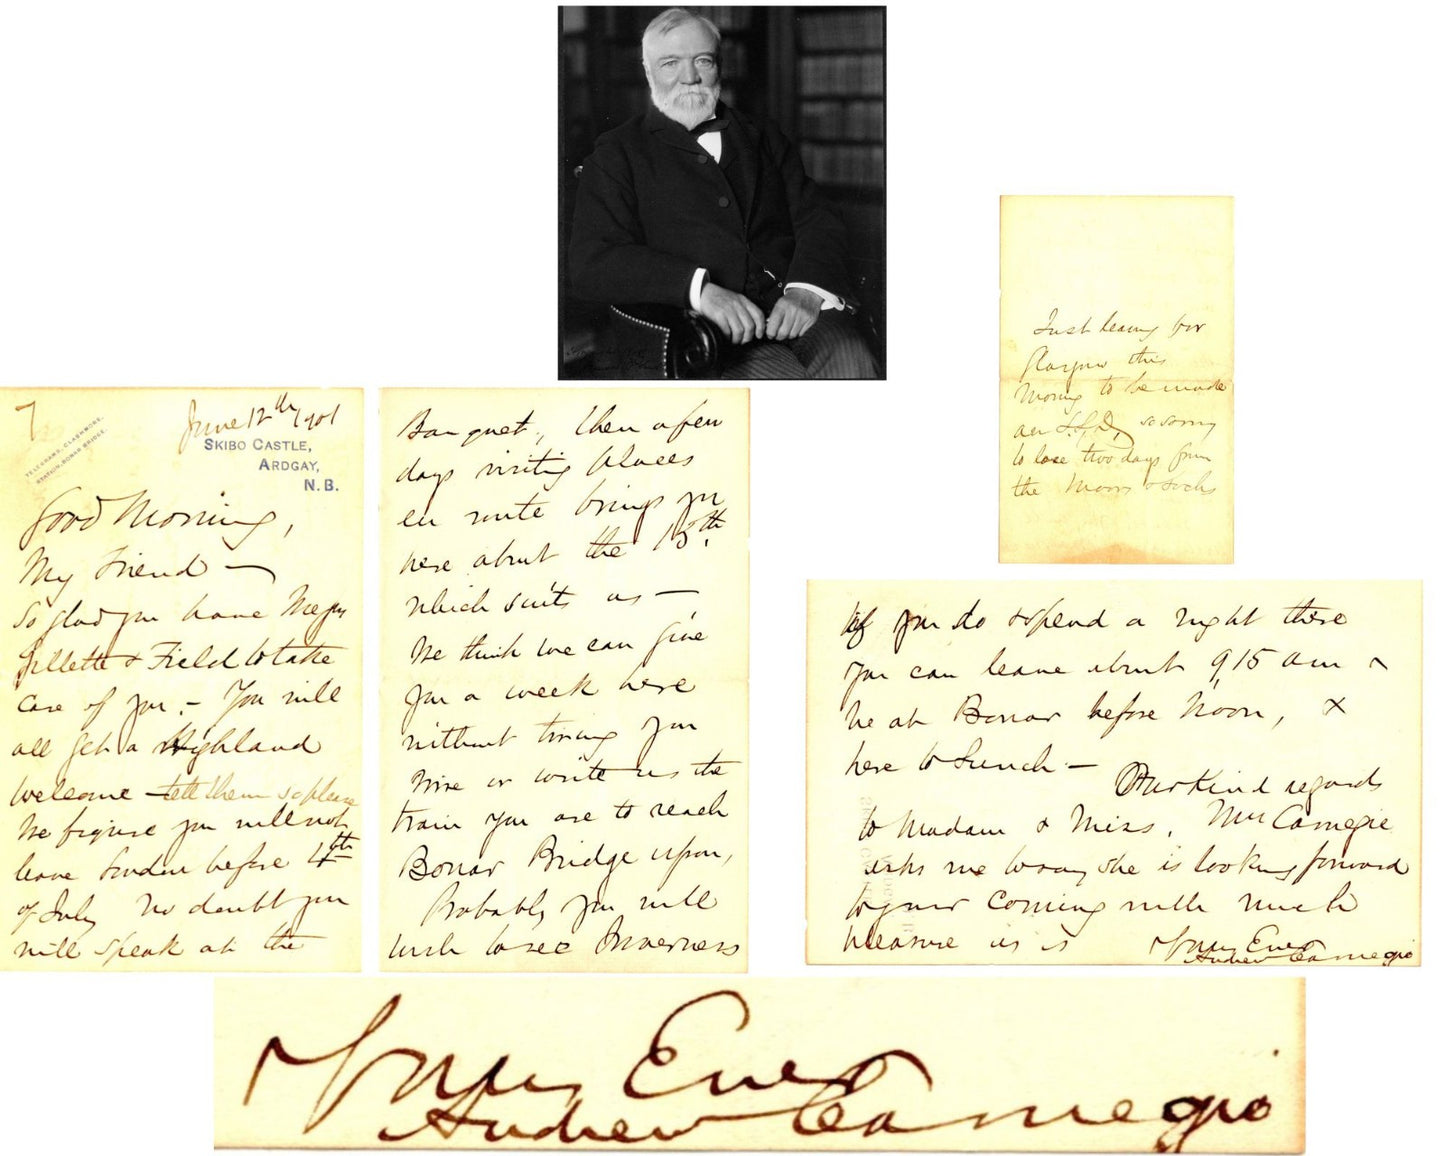 7
June 12th 1901
TELEGRAMS, CLASHMORE.
STATION, BONAR BRIDGE.
SKIBO CASTLE,
ARDGAY,
N.B.
Good Morning,
My Friend —
So glad you have Messrs
Gillette & Field to take
care of you. — You will
all get a Highland
welcome — tell them so please
We figure you will not
leave London before 4th
of July No doubt you
will speak at the
Banquet, then a few
days visiting places
en route brings you
here about the 15th.
which suits us —
We think we can give
you a week here
without tiring you
Wire or write us the
train you are to reach
Bonar Bridge upon,
Probably you will
wish to see Inverness
If you do & spend a night there
you can leave about 9,15 am &
be at Bonar before Noon, &
here to Lunch — Our Kind regards
to Madam & Miss, Mrs Carnegie
asks me to say she is looking forward
to your coming with much
pleasure as is Yours Ever
Andrew Carnegie
Just leaving for
Glasgow this
Morning to be made
an L.L.D, so sorry
to lose two days from
the Moors & Lochs
Yours Ever
Andrew Carnegie